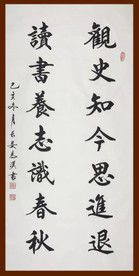 觀史知今思進退
讀書養志識春秋
己亥冬月
書